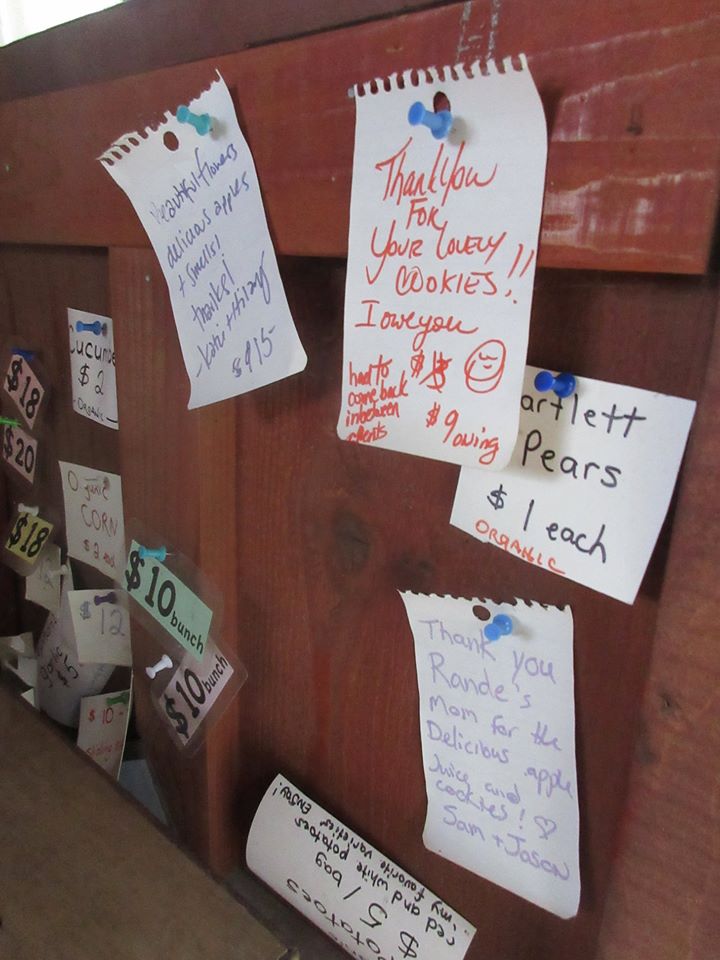 Beautiful flowers
delicious apples
+ smells!
thanks!
$915
Thank You
FOR
YOUR LOVELY
COOKIES!!
I owe you
had to
come back
inbetween
clients
$9 owing
artlett
Pears
$1 each
ORGANIC
Cucumbe
$2
ORGANIC
$18
$20
$18
CORN
$2
$10 bunch
$10 bunch
$12
$5
$10
Thank you
Rande's
Mom for the
Delicious apple
Juice and
cookies! ♡
Sam + Jason
potatoes
$5/bag
red and white potatoes
my favorite varieties ENJOY!